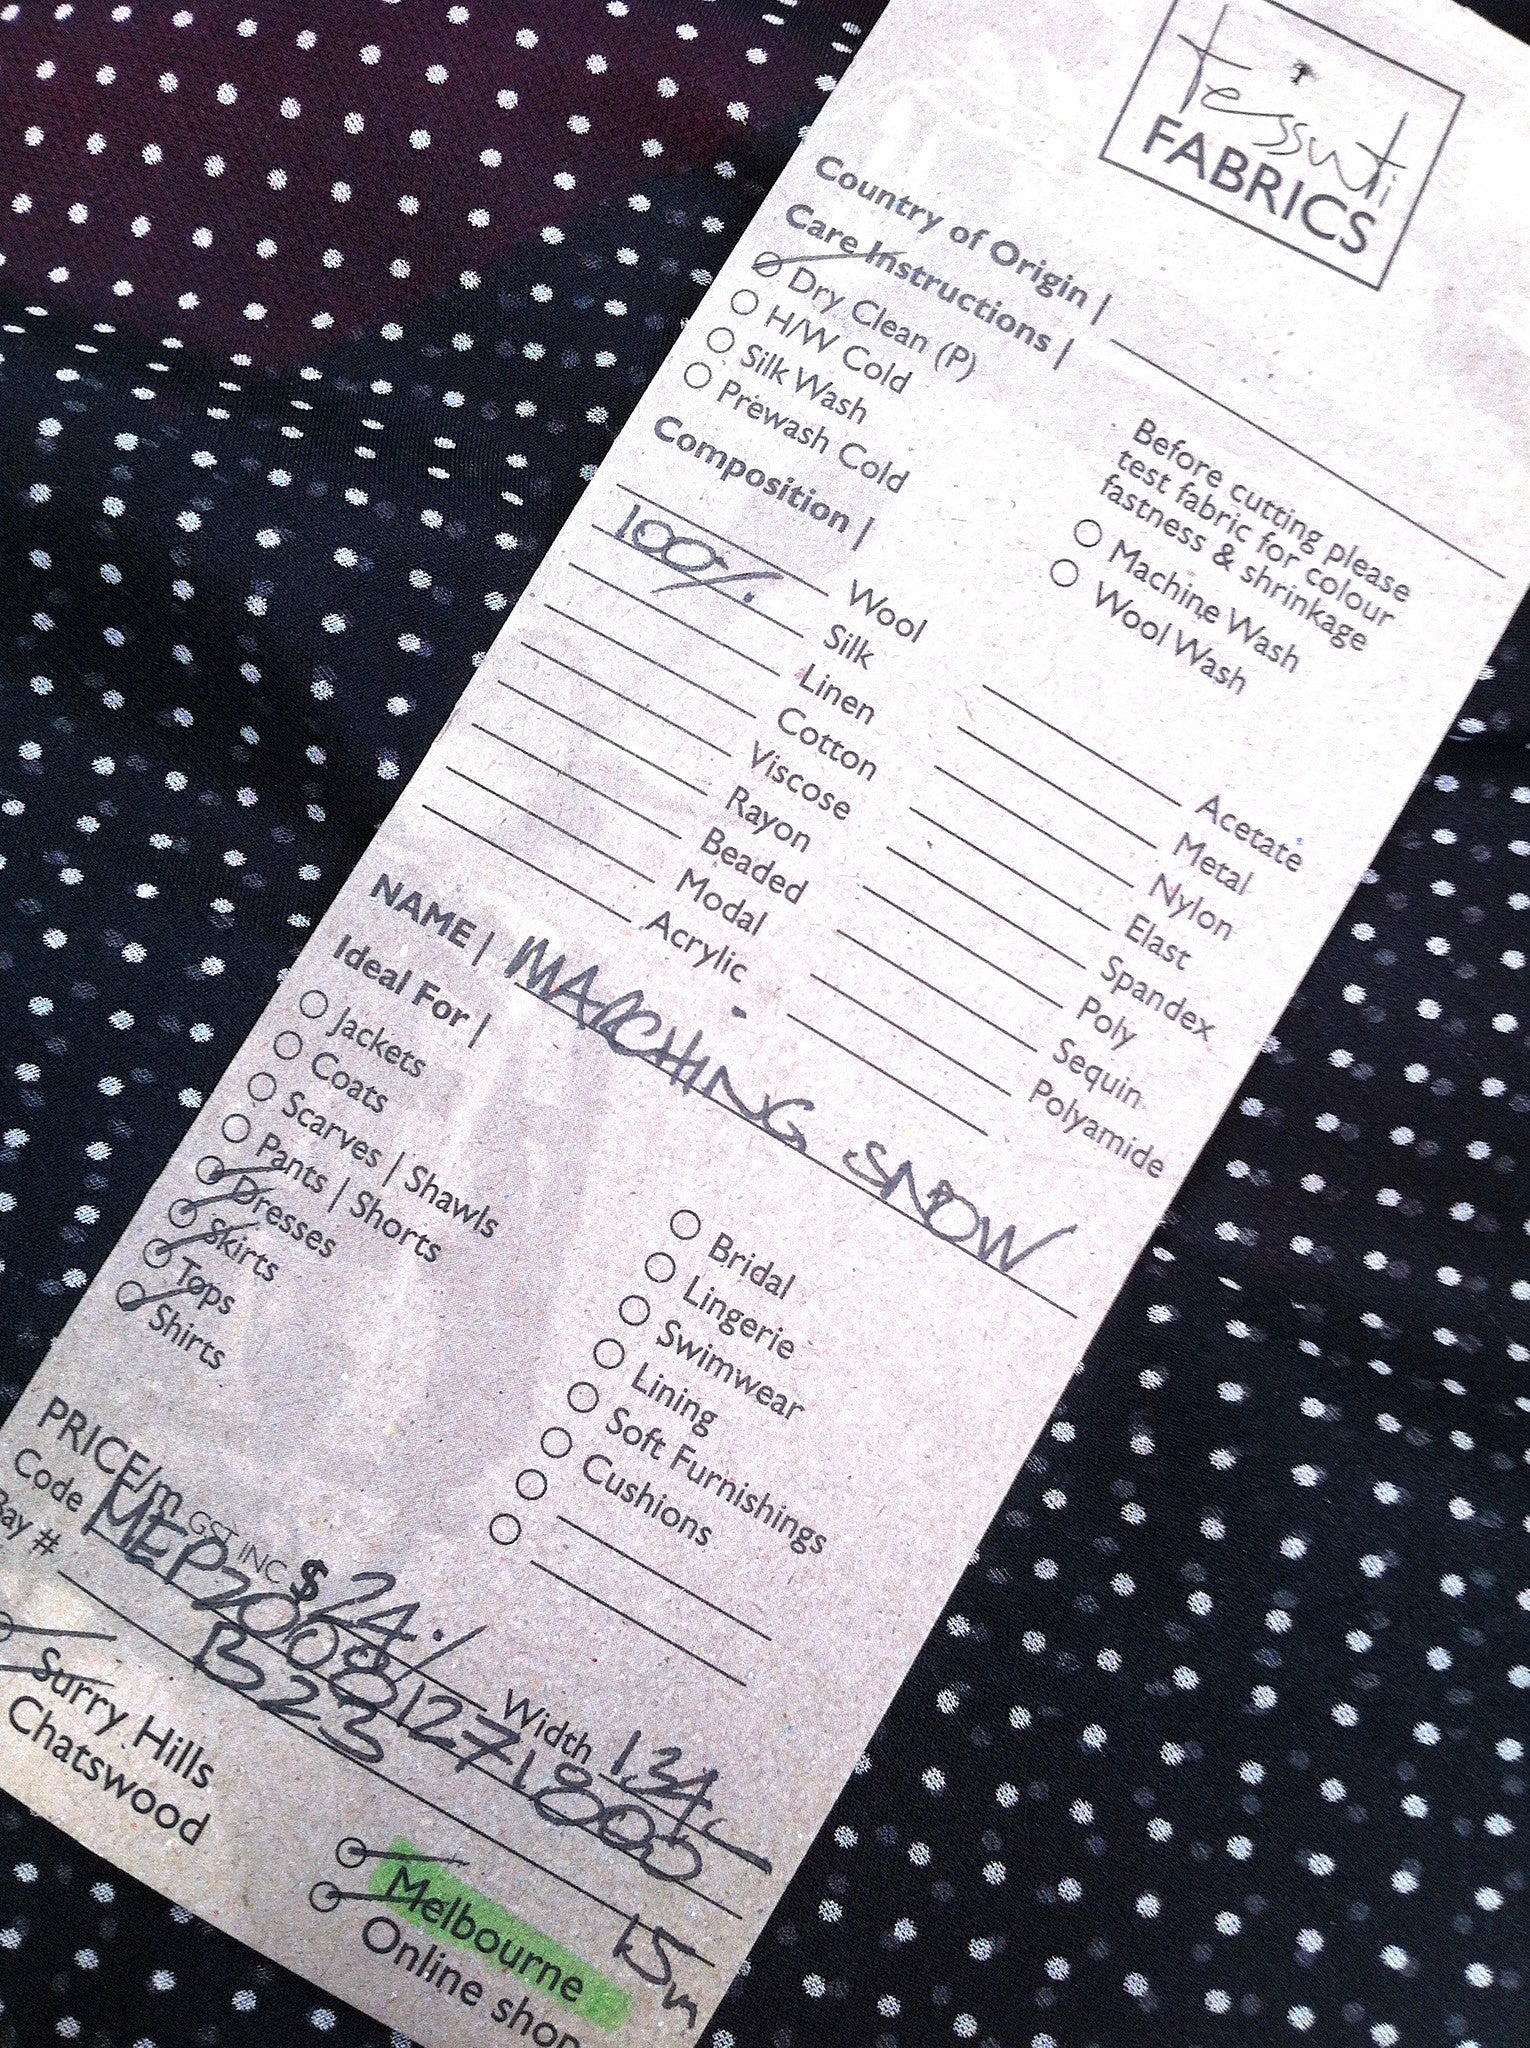 tessuti
FABRICS
Country of Origin |
Care Instructions |
Dry Clean (P)
H/W Cold
Silk Wash
Prewash Cold
Before cutting please
test fabric for colour
fastness & shrinkage
Machine Wash
Wool Wash
Composition |
Wool
100% Silk
Linen
Cotton
Viscose
Rayon
Beaded
Modal
Acrylic
Acetate
Metal
Nylon
Elast
Spandex
Poly
Sequin
Polyamide
NAME | MARCHING SNOW
Ideal For |
Jackets
Coats
Scarves | Shawls
Pants | Shorts
Dresses
Skirts
Tops
Shirts
Bridal
Lingerie
Swimwear
Lining
Soft Furnishings
Cushions
PRICE/m GST INC $ 24./ Width 134c
Code MEP20081271800
Bay # B23 15m
Surry Hills
Chatswood
Melbourne
Online shop